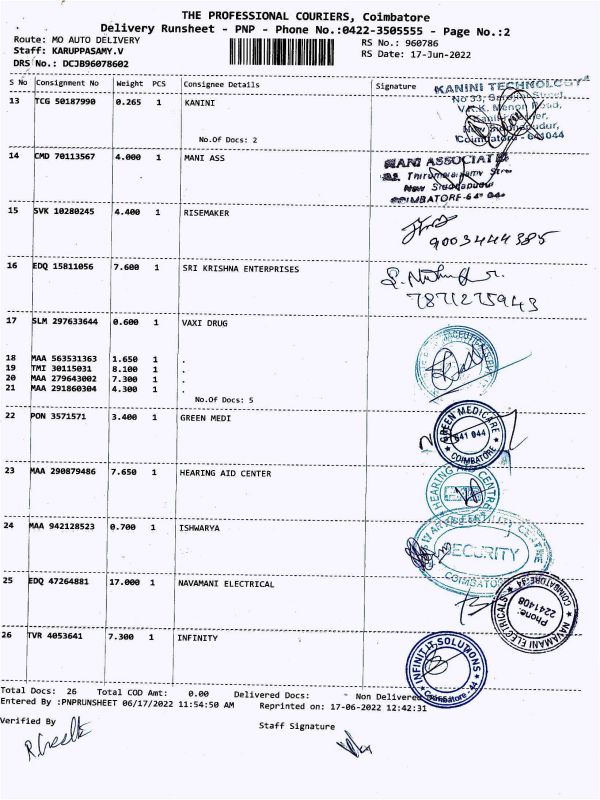 THE PROFESSIONAL COURIERS, Coimbatore
Delivery Runsheet - PNP - Phone No.:0422-3505555 - Page No.:2
Route: MO AUTO DELIVERY
RS No.: 960786
Staff: KARUPPASAMY.V
RS Date: 17-Jun-2022
DRS No.: DCJB96078602
S No Consignment No Weight PCS Consignee Details Signature
13 TCG 50187990 0.265 1 KANINI
KANINI TECHNOLOGY
Coimbatore - 641044
No.Of Docs: 2
14 CMD 70113567 4.000 1 MANI ASS
MANI ASSOCIATE
New Siddhapudur
COIMBATORE-64
15 SVK 10280245 4.400 1 RISEMAKER
9003444385
16 EDQ 15811056 7.600 1 SRI KRISHNA ENTERPRISES
7871275943
17 SLM 297633644 0.600 1 VAXI DRUG
18 MAA 563531363 1.650 1 .
19 TMI 30115031 8.100 1 .
20 MAA 279643002 7.300 1 .
21 MAA 291860304 4.300 1 .
No.Of Docs: 5
22 PON 3571571 3.400 1 GREEN MEDI
GREEN MEDICARE
641 044
COIMBATORE
23 MAA 290879486 7.650 1 HEARING AID CENTER
HEARING AID CENTRE
24 MAA 942128523 0.700 1 ISHWARYA
SECURITY
COIMBATORE
25 EDQ 47264881 17.000 1 NAVAMANI ELECTRICAL
NAVAMANI ELECTRICALS
COIMBATORE-44
Phone:
2241408
26 TVR 4053641 7.300 1 INFINITY
INFINIT IT SOLUTIONS
Coimbatore - 44
Total Docs: 26 Total COD Amt: 0.00 Delivered Docs: Non Delivered
Entered By :PNPRUNSHEET 06/17/2022 11:54:50 AM Reprinted on: 17-06-2022 12:42:31
Verified By
Staff Signature